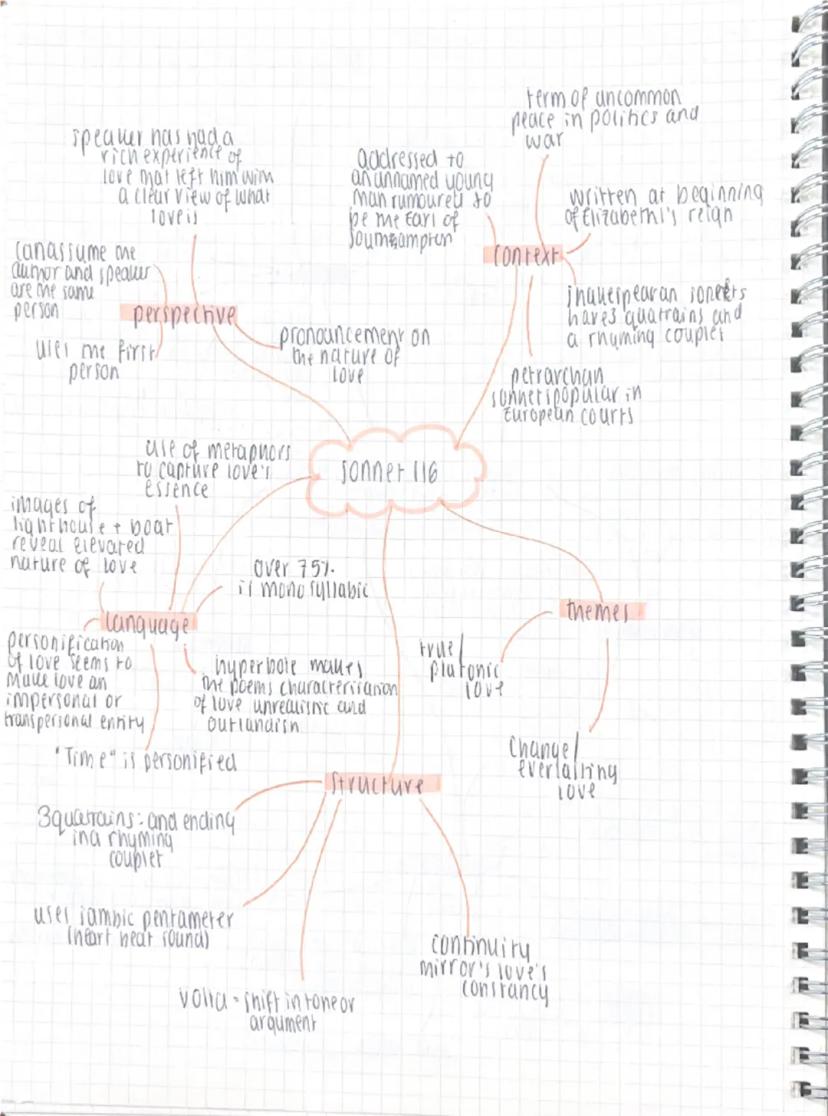 term of uncommon
peace in politics and
war
speaker has had a
rich experience of
love that left him with
a clear view of what
love is
addressed to
an unnamed young
man rumoured to
be the Earl of
Southampton
written at beginning
of Elizabeth I's reign
context
can assume the
author and speaker
are the same
person
perspective
shakespearan sonnets
have 3 quatrains and
a rhyming couplet
uses the first
person
pronouncement on
the nature of
love
petrarchan
sonnets popular in
European courts
use of metaphors
to capture love's
essence
sonnet 116
images of
lighthouse + boat
reveal elevated
nature of love
over 75%
is monosyllabic
language
themes
personification
of love seems to
make love an
impersonal or
transpersonal entity
true/
platonic
love
hyperbole makes
the poems characterisation
of love unrealistic and
outlandish
"Time" is personified
Change/
everlasting
love
structure
3 quatrains : and ending
in a rhyming
couplet
uses iambic pentameter
(heart beat sound)
continuity
mirror's love's
constancy
volta = shift in tone or
argument